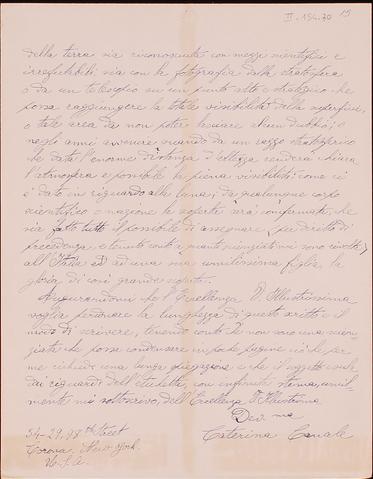 II-154.30 15
della terra sia riconosciuta con mezzi scientifici e
irrefutabili, sia con la fotografia dalla stratosfera
o da un telescopio su un punto alto e strategico che
possa raggiungere la totale visibilità della superficie,
o tale area da non poter lasciare alcun dubbio; o
negli anni avvenire quando da un razzo stratosferico
che data l'enorme distanza d'altezza renderà chiara
l'atmosfera e possibile la piena visibilità come ci
è dato in riguardo alla luna, da qualunque corpo
scientifico o nazione la scoperta sarà confermata, che
sia fatto tutto il possibile di assegnare per diritto di
precedenza, e tenuto conto a quanti mi sono
all'Italia ed ad una sua umilissima figlia la
gloria di così grande scoperta.
Augurandomi che l'Eccellenza V. Illustrissima
voglia perdonare la lunghezza di questo scritto e il
modo di scrivere, tenendo conto che non sono una scien-
ziata che possa condensare in poche pagine ciò che per
me richiede una lunga spiegazione e che il
dai riguardi dell'etichetta, con infinita stima, umil-
mente mi sottoscrivo, dell'Eccellenza V. Illustrissima
Dev.ma
Caterina Canale
34-29, 98th Street
Corona, New York.
U.S.A.